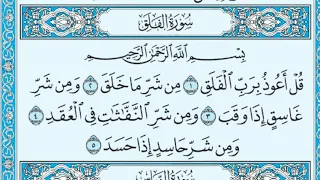 سُورَةُ الفَلَقِ
بِسْمِ اللَّهِ الرَّحْمَٰنِ الرَّحِيمِ
قُلْ أَعُوذُ بِرَبِّ الْفَلَقِ ١ مِن شَرِّ مَا خَلَقَ ٢ وَمِن شَرِّ
غَاسِقٍ إِذَا وَقَبَ ٣ وَمِن شَرِّ النَّفَّاثَاتِ فِي الْعُقَدِ ٤
وَمِن شَرِّ حَاسِدٍ إِذَا حَسَدَ ٥
سُورَةُ النَّاسِ